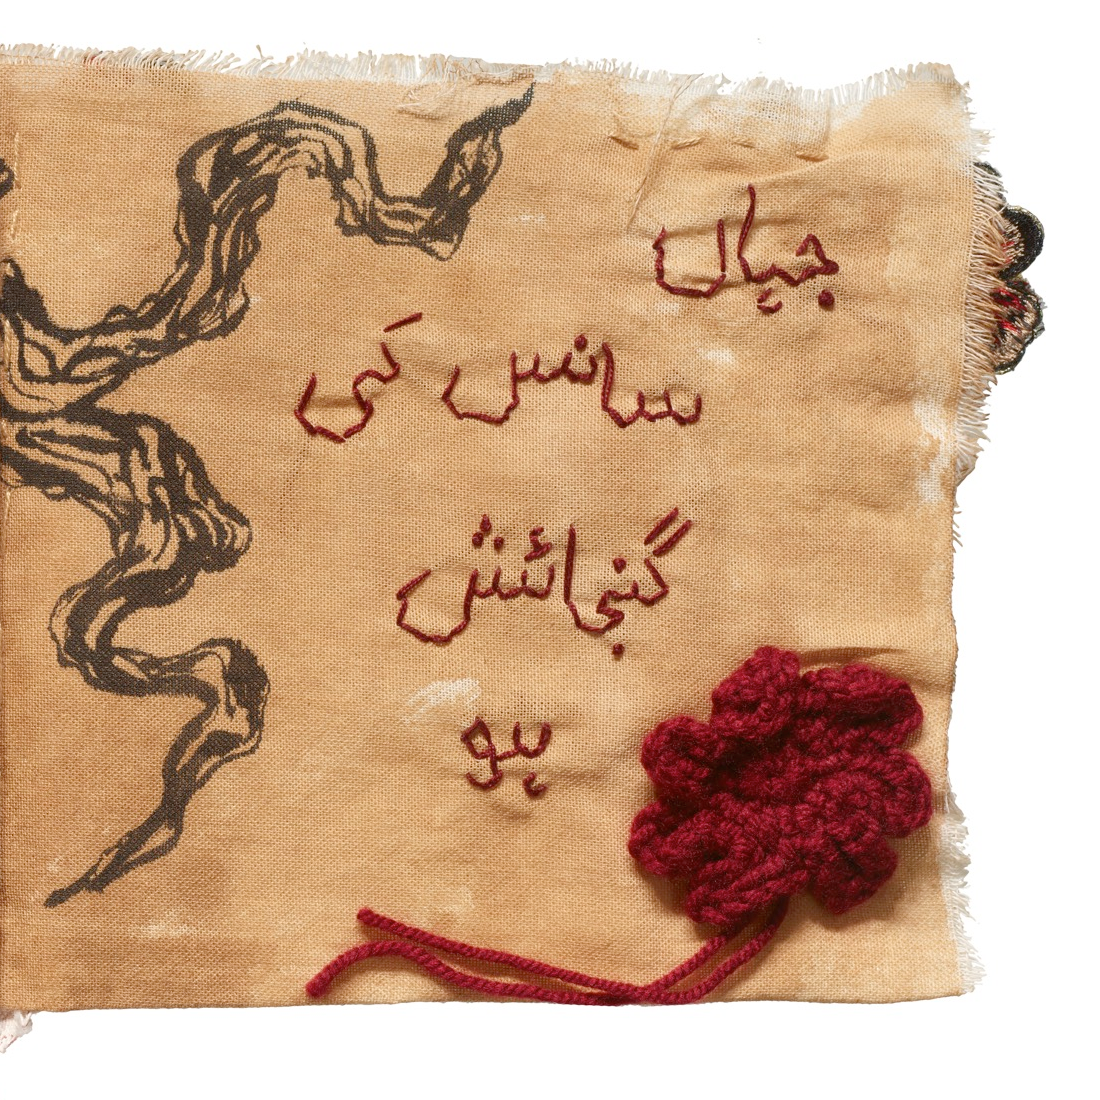 جہاں
سانس کی
گنجائش
ہو